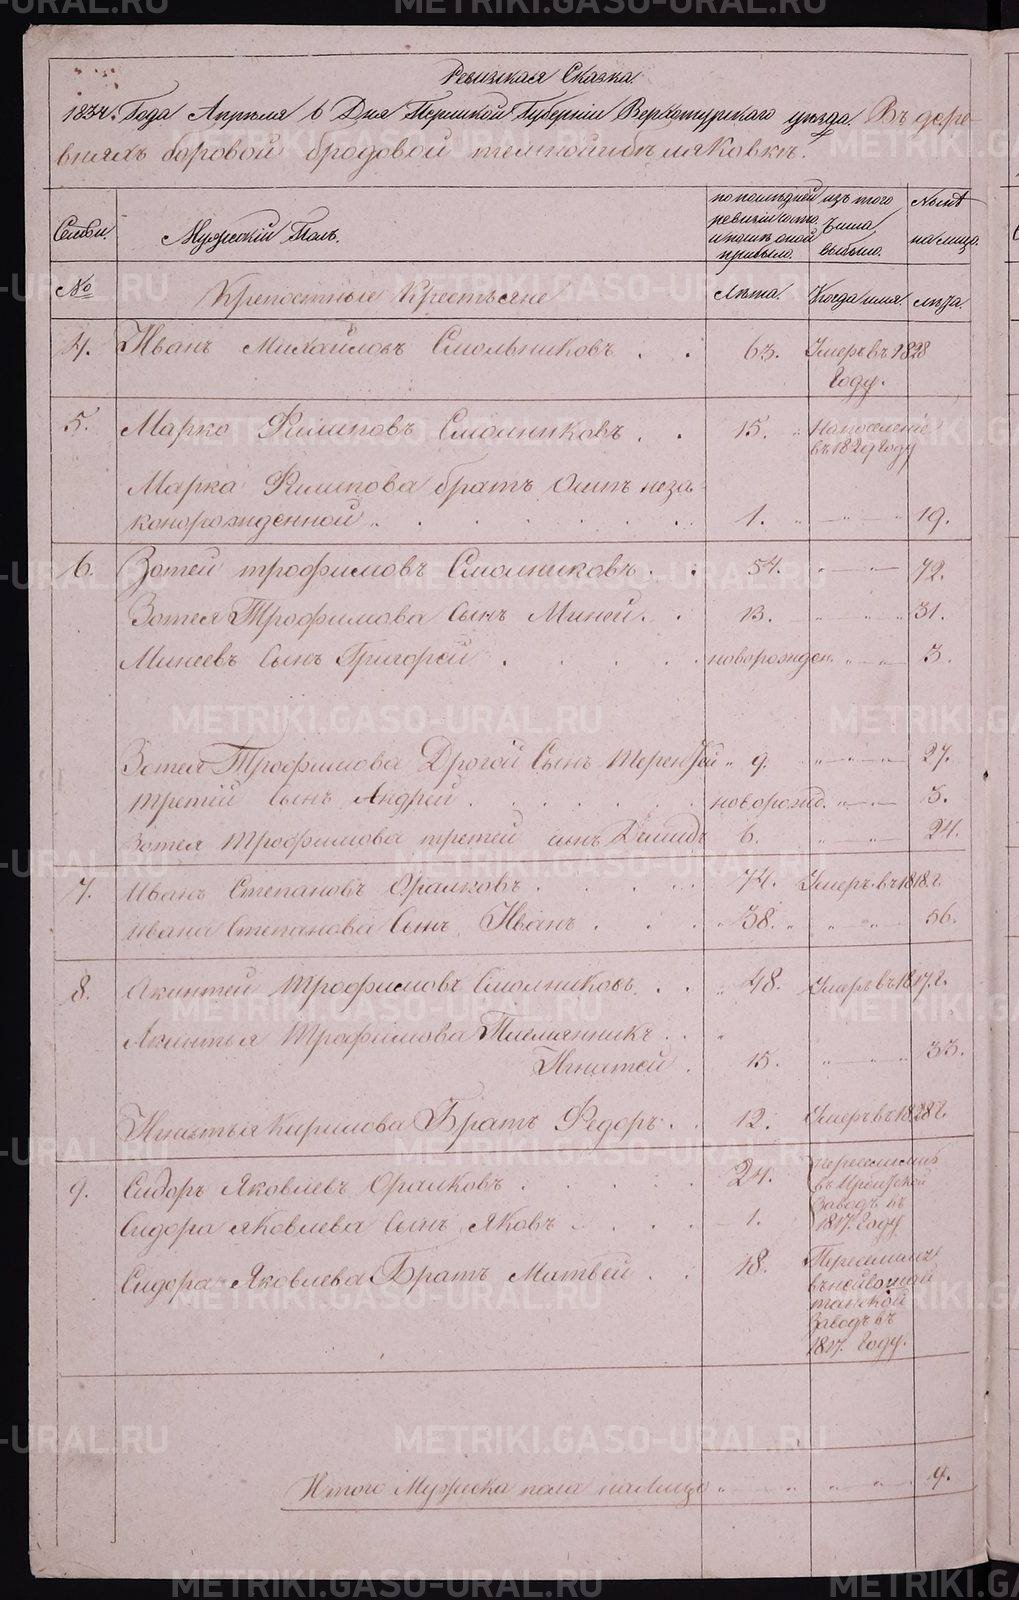 Ревизская Сказка
1834. Года Апреля 6 Дня Пермской Губернии Верхотурского уезда. Въ дере-
вняхъ боровой бродовой
по последней
ревизии состо.
и после оной
прибыло.
изъ того
числа
выбыло.
Ныне
на лицо.
Семьи.
Мужеский Полъ.
№
Крепостные Крестьяне
Лета.
Когда имя.
лета.
4. Иванъ Михайловъ Смольниковъ . . 63. Умеръ въ 1828
Году.
5. Марко Филиповъ Смолниковъ . . 15.
въ 1829 Году
Марка Филипова братъ Осипъ неза-
конорожденной . . . . . . 1. 19.
6. Зотей трофимовъ Смолниковъ . . 54. 72.
Зотея Трофимова Сынъ Миней . . 13. 31.
Минеевъ Сынъ Григорей . . . . . новорожден. 3.
Зотея Трофимова Другой Сынъ Терентей 9. 27.
третий Сынъ Андрей . . . . . новорожд. 3.
Зотея Трофимова третей сынъ Демидъ 6. 24.
7. Иванъ Степановъ Оралковъ . . . . 74. Умеръ въ 1818. г.
Ивана Степанова Сынъ Иванъ . . . 38. 56.
8. Акинтей Трофимовъ Смолниковъ . . 48. Умеръ въ 1817. г.
Акинтья Трофимова Племянникъ . .
Игнатей . 15. 33.
Игнатья Кирилова Братъ Федоръ . . 12. Умеръ въ 1828 г.
9. Сидоръ Яковлевъ Оралковъ . . . . 24. переселилс
въ
Заводъ въ
1817. Году
Сидора Яковлева Сынъ Яковъ . . . . 1.
Сидора Яковлева Братъ Матвей . . 18.
Заводъ въ
1817. Году.
Итого Мужеска пола налицо 9.
METRIKI.GASO-URAL.RU